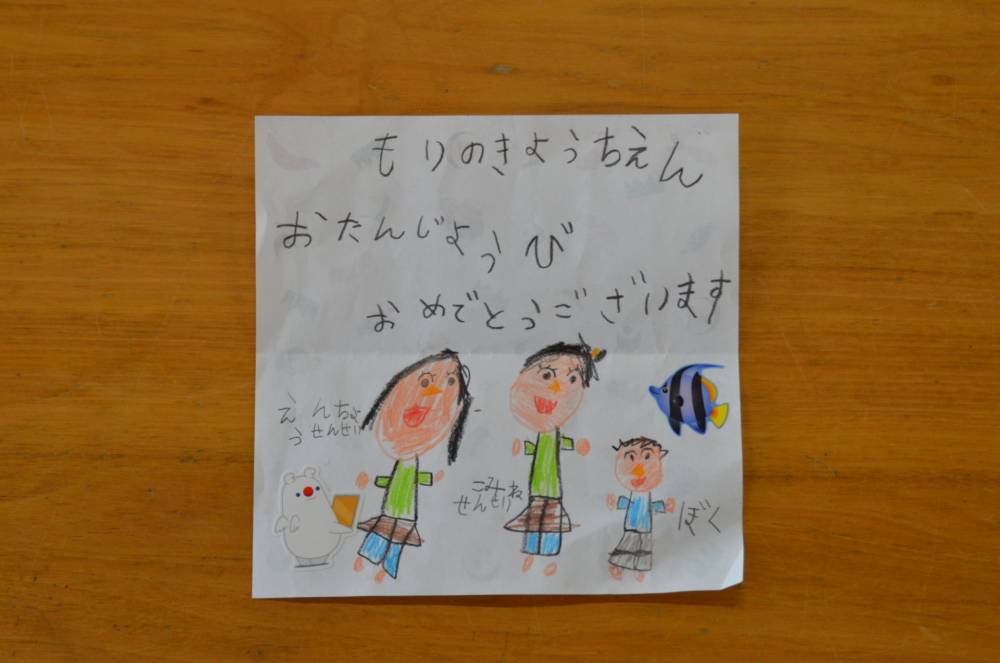 もりのきょうちえん
おたんじょうび
おめでとうございます
えんちょ
うせんせい
こみね
せんせい
ぼく